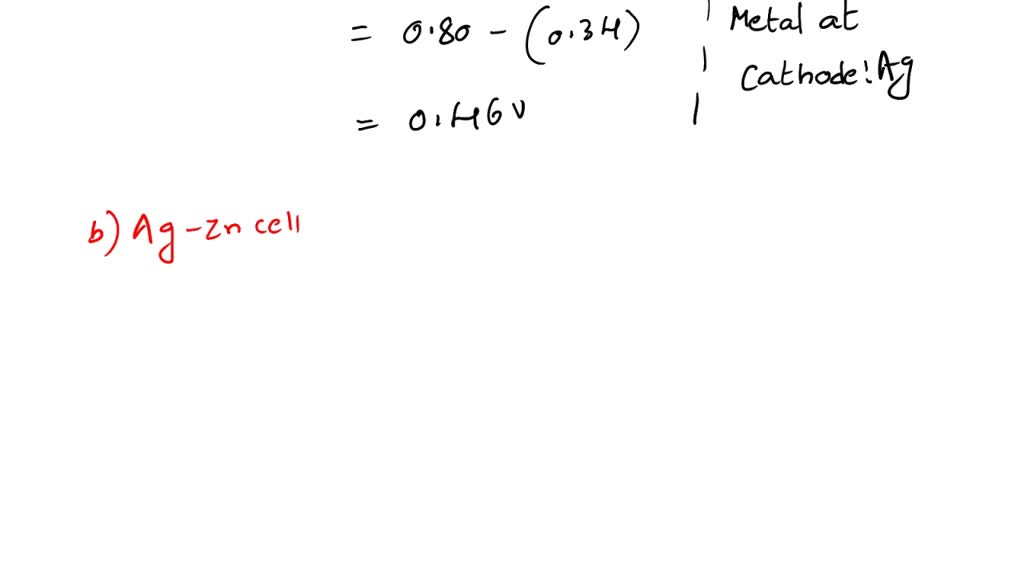 = 0.80 - (0.34)
Metal at
Cathode: Ag
= 0.46 V
b) Ag-Zn cell